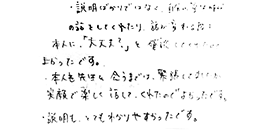 ・説明ばかりではなく、
の話をしてくれたり、話が
本人に、「大丈夫?」と確認してくれて
よかったです。
・本人も先生に会うまでは、緊張して
笑顔で楽しく話してくれたのでよかったです。
・説明も、とてもわかりやすかったです。